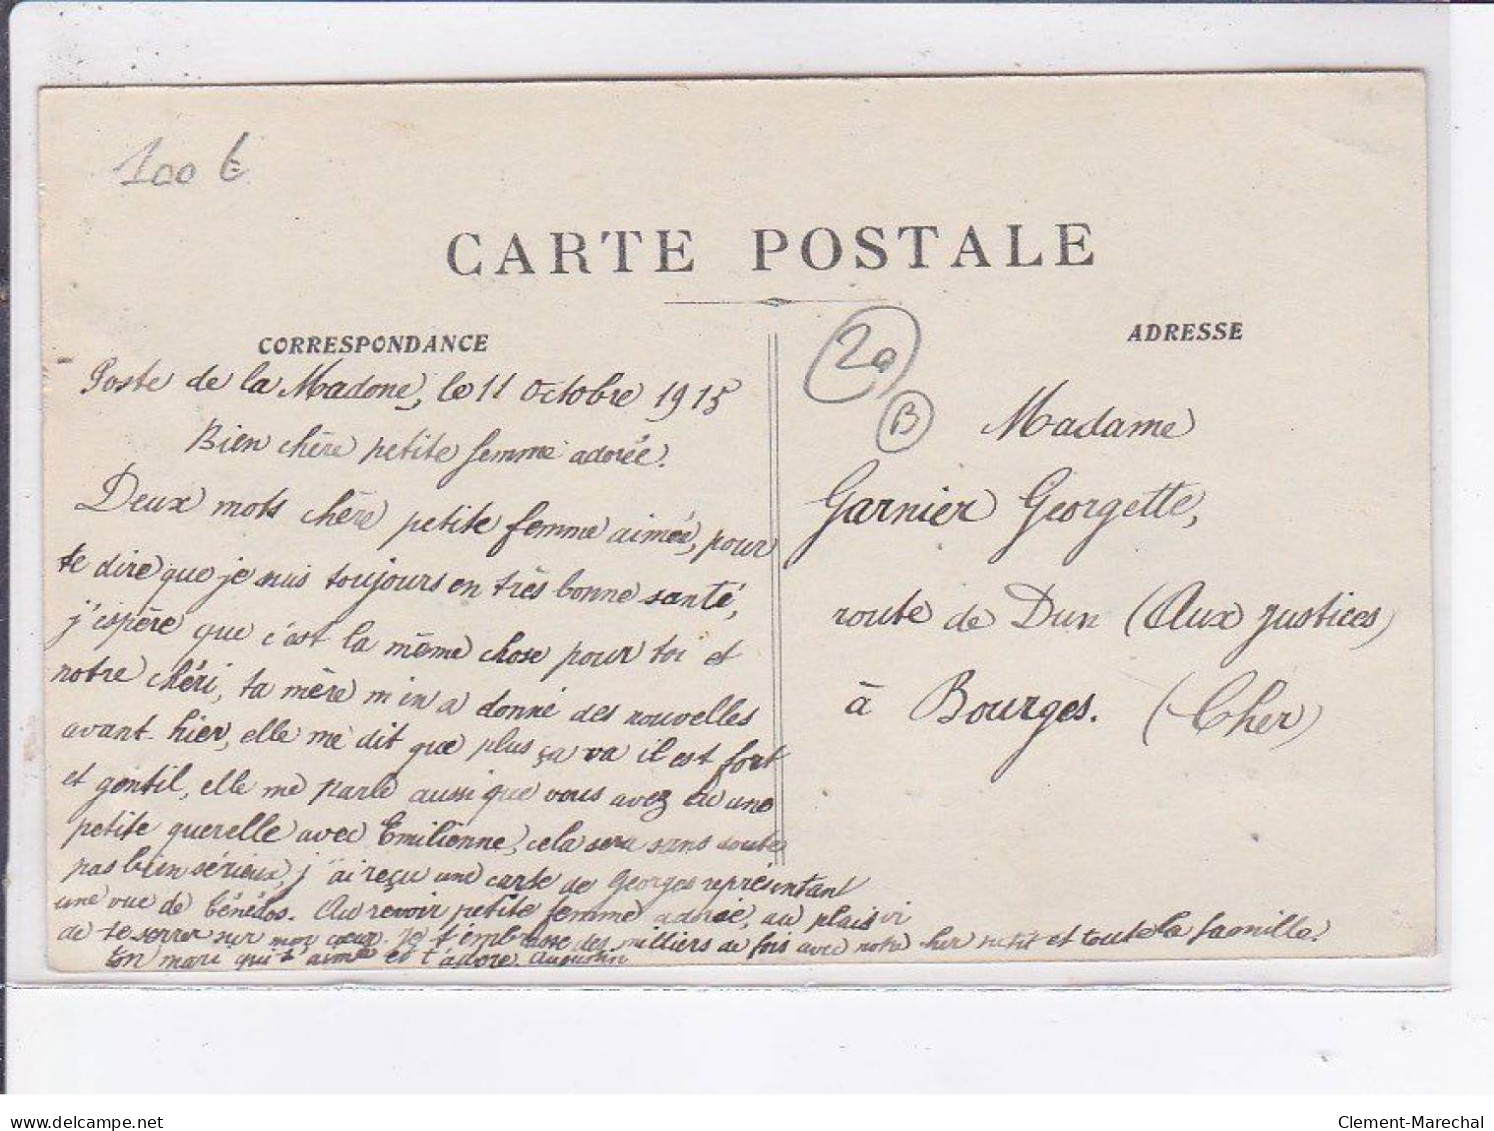 100 €
CARTE POSTALE
CORRESPONDANCE
Poste de la Madone, le 11 octobre 1915
Bien chère petite femme adorée.
Deux mots chère petite femme aimée, pour
te dire que je suis toujours en très bonne santé,
j'espère que c'est la même chose pour toi et
notre chéri, ta mère m'en a donné des nouvelles
avant-hier, elle me dit que plus ça va il est fort
et gentil, elle me parle aussi que vous avez eu une
petite querelle avec Emilienne, cela sera sans doute
pas bien sérieux, j'ai reçu une carte de Georges représentant
une vue de Ténédos. Au revoir petite femme adorée, au plaisir
de te serrer sur mon cœur. Je t'embrasse des milliers de fois avec notre cher petit et toute la famille.
Ton mari qui t'aime et t'adore. Augustin
2a
B
ADRESSE
Madame
Garnier Georgette,
route de Dun (Aux justices)
à Bourges. (Cher)
delcampe.net
Clement-Marechal